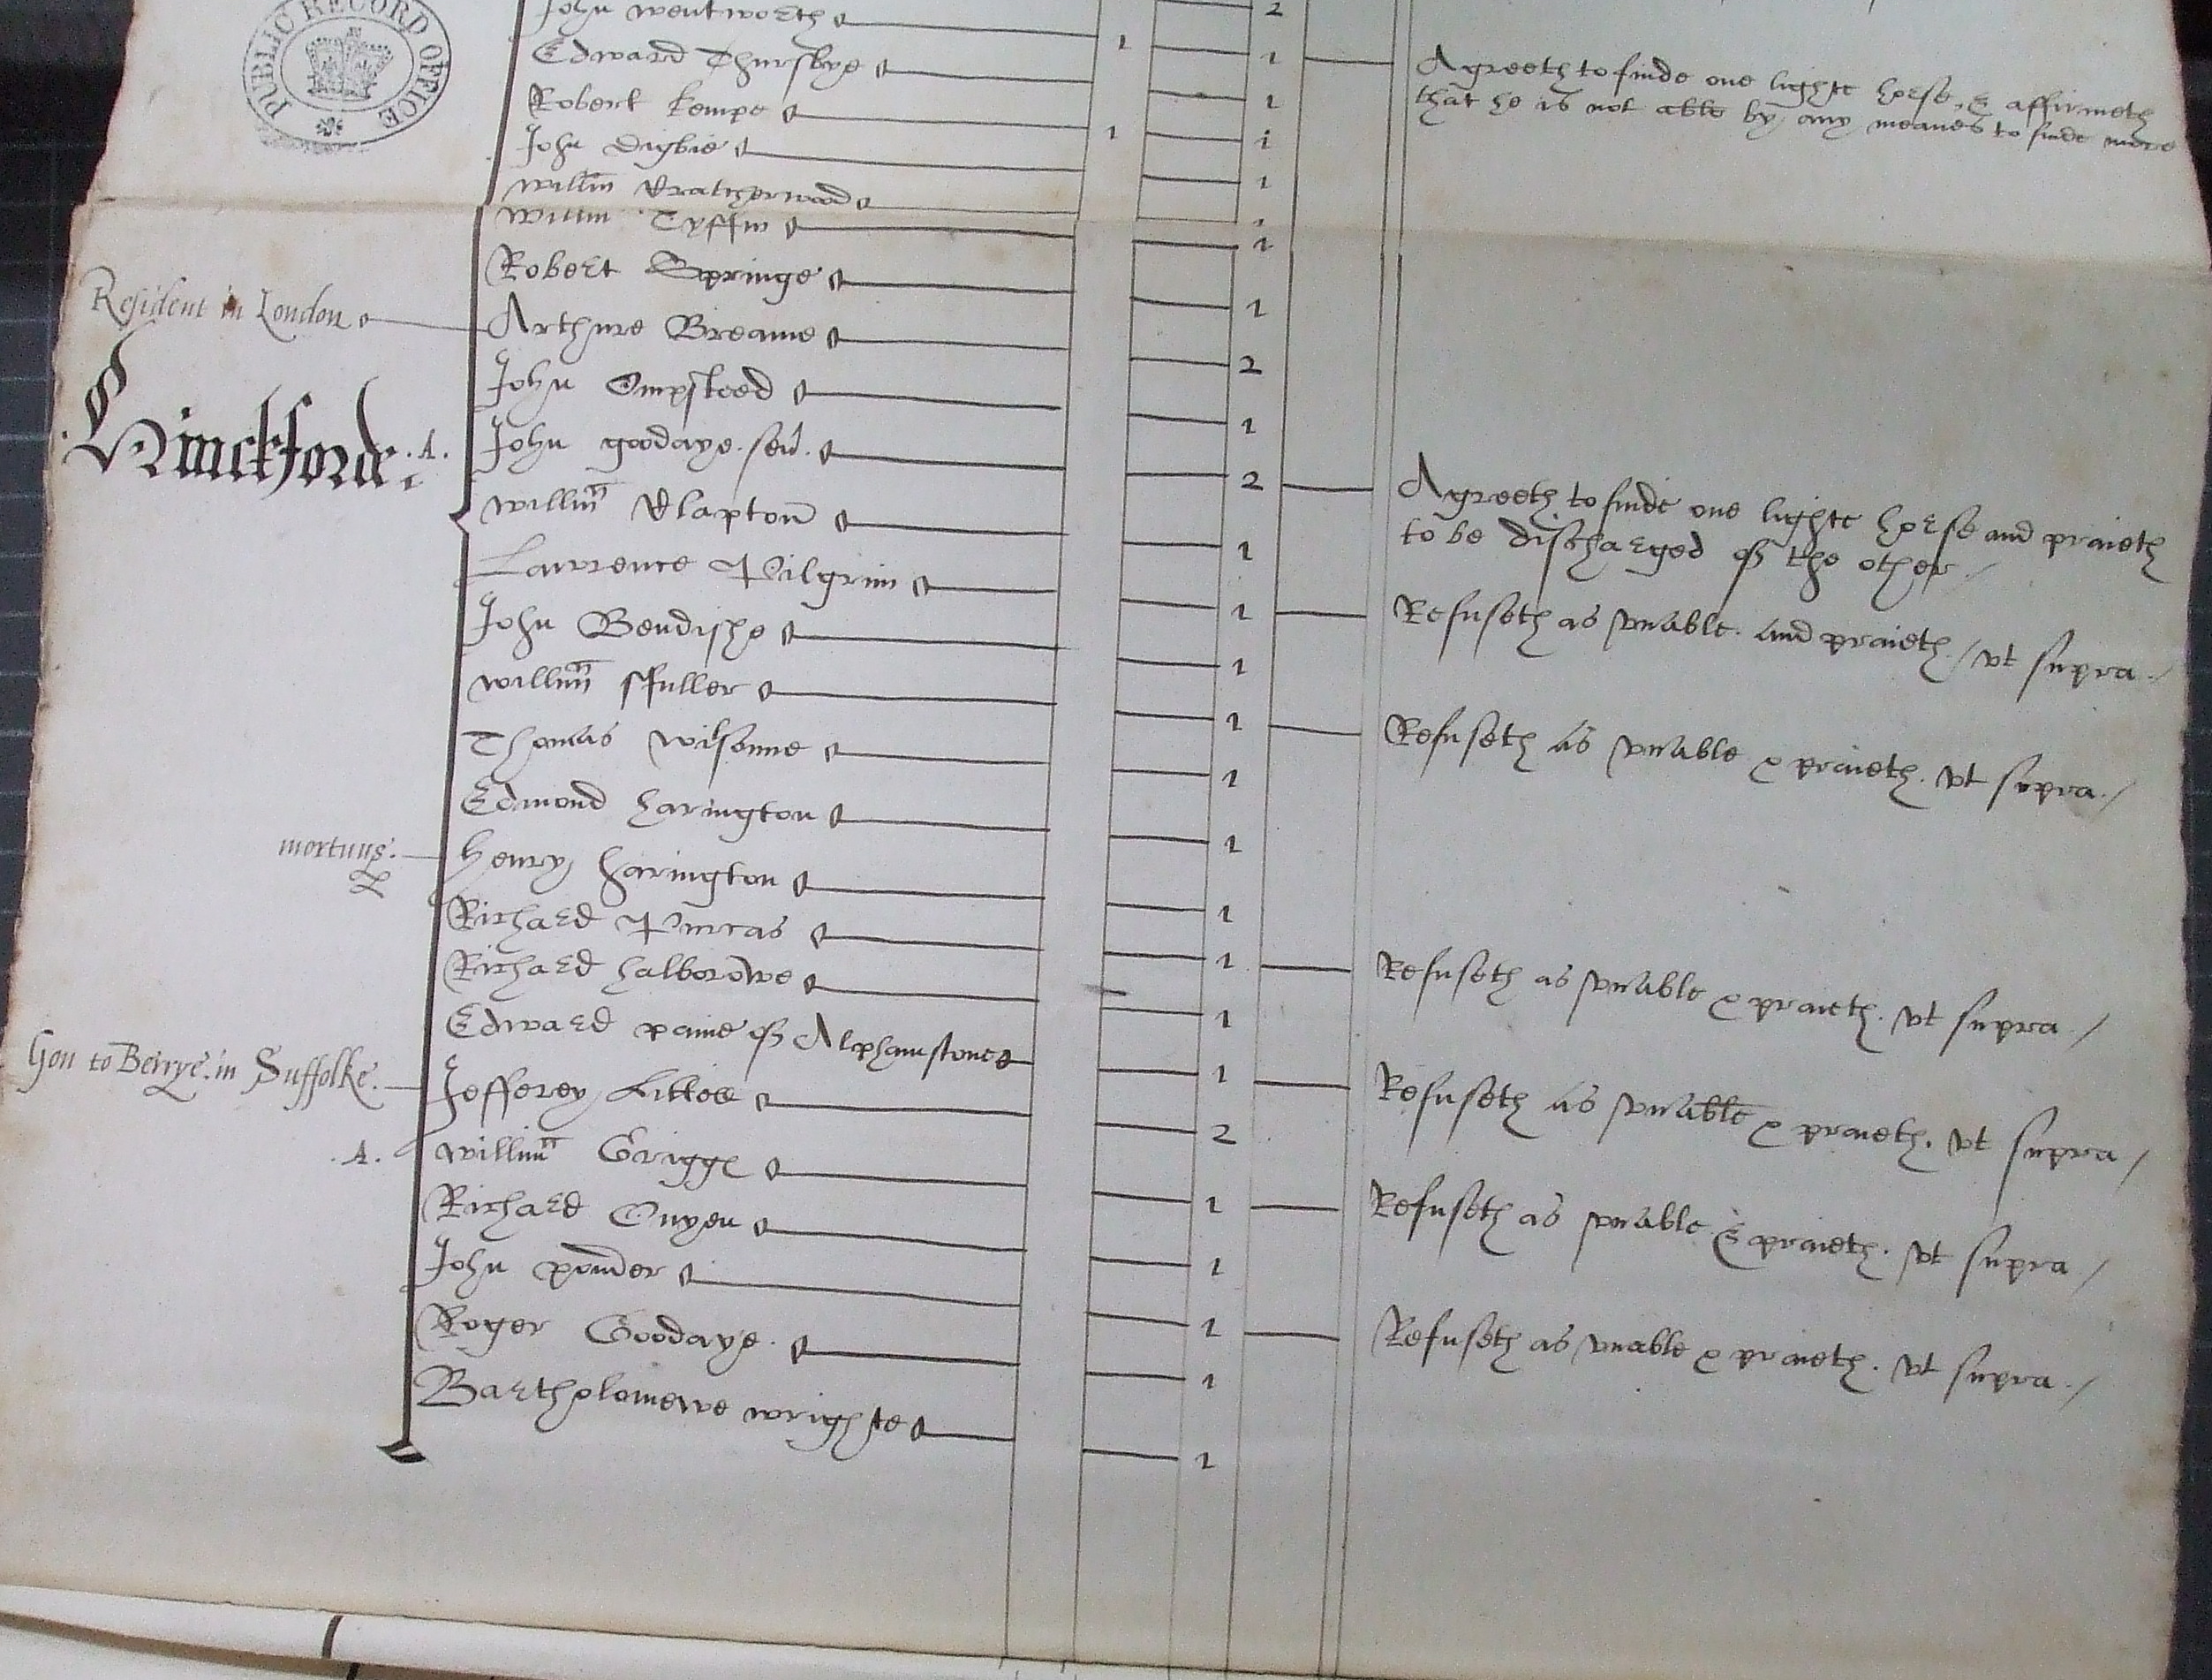 PUBLIC RECORD OFFICE
John Wentworth 2
Edward Thursbye 1 1 Agreeth to finde one lighte horse, & affirmeth
that he is not able by any meanes to finde more
Robert kempe 1
John Digbie 1 i
Willm̄ 1
Willm Tyffin 1
Robert Springe 1
Resident in London Arthure Breame 1
John Ompsteed 2
Hinckforde .A. John goodaye. sen̄. 1
Willm̄ Clapton̄ 2 Agreeth to finde one lighte horse and praieth
to be discharged of the other
Lawrence Pilgrim 1
John Bendishe 1 Refuseth as vnable. and praieth / vt supra /
Willm̄ ffuller 1
Thomas Wilsonne 1 Refuseth as vnable & praieth. vt supra /
Edmond harington 1
mortuus. Henry harington 1
Richard Purcas 1
Richard halborowe 1 Refuseth as vnable & praieth. vt supra /
Edward paine of Alphamstone 1
Gon to Berrye in Suffolke. Jefferey Littell 1 Refuseth as vnable & praieth. vt supra /
.A. Willm̄ Griggs 2
Richard Onyon 1 Refuseth as vnable & praieth. vt supra /
John ponder 1
Roger Goodaye. 1 Refuseth as vnable & praieth. vt supra /
Bartholomewe wrighte 1
1